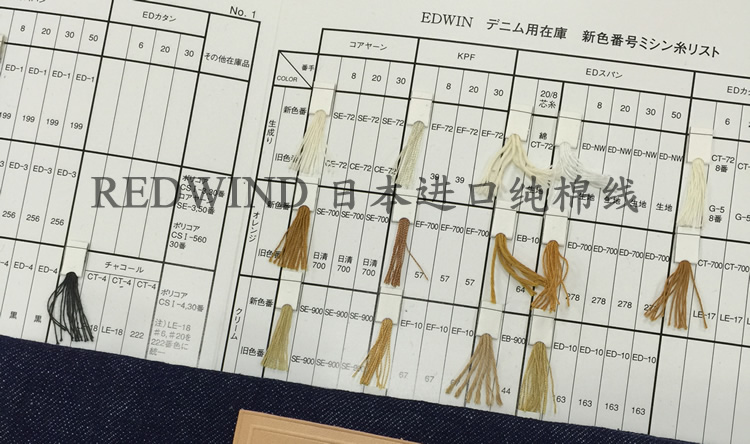 No. 1
EDカタン
8 20 30 50
6 20 30
その他在庫品
ED-1 ED-1 ED-1
199 199 199
ED-3 ED-3 ED-3
256 256 256
ED-4 ED-4
黒 黒
チャコール
CT-4 CT-4 CT-4
LE-18 222
ポリコア
CSⅠ-560
30番
ポリコア
CSⅠ-4,30番
注)LE-18
#6,#20を
222番色に
統一
EDWIN デニム用在庫 新色番号ミシン糸リスト
コアヤーン KPF EDスパン
番手
COLOR
8 20 30 8 20 30 20/8 芯糸 8 20 30 50 6
生成り
新色番 SE-72 SE-72 SE-72 EF-72 EF-72 EF-72 綿 CT-72 ED-NW ED-NW ED-NW CT-72 8番
旧色番 CE-72 CE-72 CE-72 39 39 生地 生地 G-5 8番
REDWIND 日本进口纯棉线
オレンジ
新色番 SE-700 SE-700 SE-700 EF-700 EF-700 EF-700 EB-10 ED-700 ED-700 ED-700 ED-700 CT-700 CT-700
旧色番 日清700 日清700 日清700 57 57 57 278 278 278 278 LE-17 LE-17
クリーム
新色番 SE-900 SE-900 EF-10 EF-10 EF-10 EB-900 ED-10 ED-10 ED-10 ED-10
旧色番 SE-900 SE-900 SE-900 67 67 44 163 163 163 163